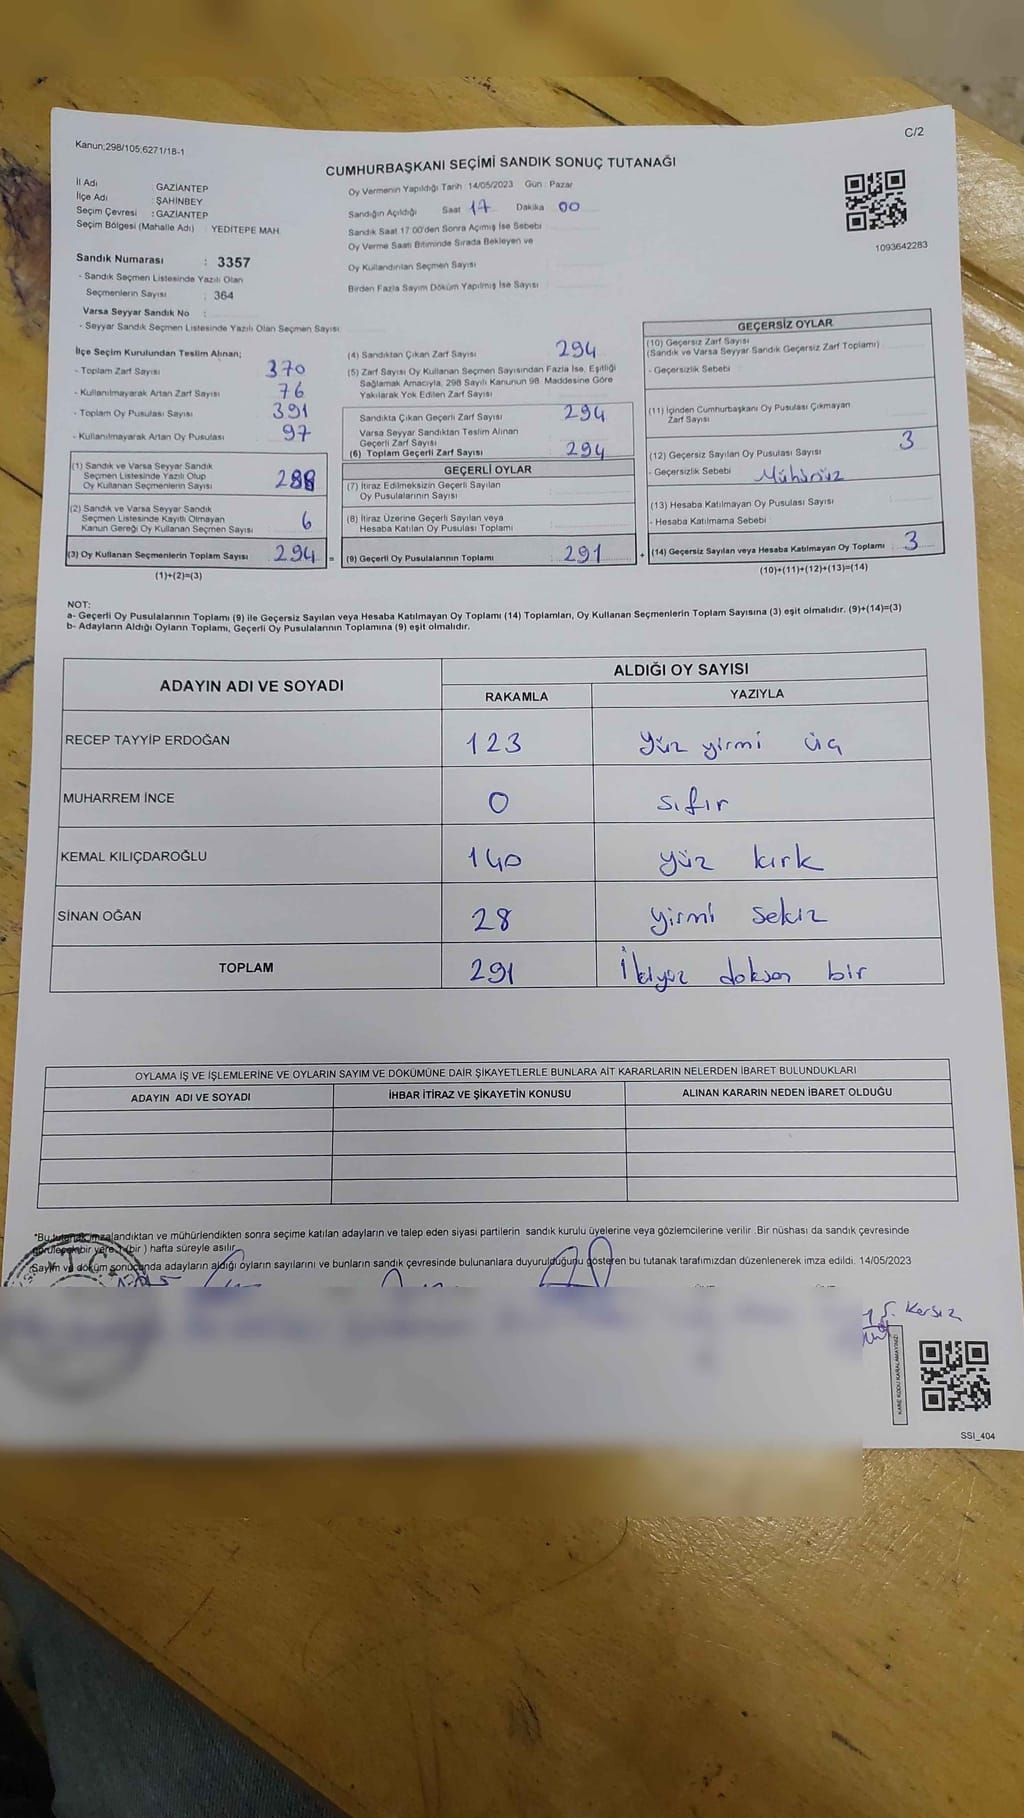 Kanun;298/105,6271/18-1
C/2
CUMHURBAŞKANI SEÇİMİ SANDIK SONUÇ TUTANAĞI
İl Adı : GAZİANTEP
İlçe Adı : ŞAHİNBEY
Seçim Çevresi : GAZİANTEP
Seçim Bölgesi (Mahalle Adı) : YEDİTEPE MAH.
Oy Vermenin Yapıldığı Tarih : 14/05/2023 Gün : Pazar
Sandığın Açıldığı Saat 17 Dakika 00
Sandık Saat 17:00'den Sonra Açımış İse Sebebi
Oy Verme Saati Bitiminde Sırada Bekleyen ve
Oy Kullandırılan Seçmen Sayısı
Birden Fazla Sayım Döküm Yapılmış İse Sayısı
1093642283
Sandık Numarası : 3357
- Sandık Seçmen Listesinde Yazılı Olan
Seçmenlerin Sayısı : 364
Varsa Seyyar Sandık No :
- Seyyar Sandık Seçmen Listesinde Yazılı Olan Seçmen Sayısı
İlçe Seçim Kurulundan Teslim Alınan;
- Toplam Zarf Sayısı 370
- Kullanılmayarak Artan Zarf Sayısı 76
- Toplam Oy Pusulası Sayısı 391
- Kullanılmayarak Artan Oy Pusulası 97
(1) Sandık ve Varsa Seyyar Sandık
Seçmen Listesinde Yazılı Olup
Oy Kullanan Seçmenlerin Sayısı 288
(2) Sandık ve Varsa Seyyar Sandık
Seçmen Listesinde Kayıtlı Olmayan
Kanun Gereği Oy Kullanan Seçmen Sayısı 6
(3) Oy Kullanan Seçmenlerin Toplam Sayısı 294 =
(1)+(2)=(3)
(4) Sandıktan Çıkan Zarf Sayısı 294
(5) Zarf Sayısı Oy Kullanan Seçmen Sayısından Fazla İse, Eşitliği
Sağlamak Amacıyla, 298 Sayılı Kanunun 98. Maddesine Göre
Yakılarak Yok Edilen Zarf Sayısı
Sandıkta Çıkan Geçerli Zarf Sayısı 294
Varsa Seyyar Sandıktan Teslim Alınan
Geçerli Zarf Sayısı
(6) Toplam Geçerli Zarf Sayısı 294
GEÇERLİ OYLAR
(7) İtiraz Edilmeksizin Geçerli Sayılan
Oy Pusulalarının Sayısı
(8) İtiraz Üzerine Geçerli Sayılan veya
Hesaba Katılan Oy Pusulası Toplamı
(9) Geçerli Oy Pusulalarının Toplamı 291 +
GEÇERSİZ OYLAR
(10) Geçersiz Zarf Sayısı
(Sandık ve Varsa Seyyar Sandık Geçersiz Zarf Toplamı)
- Geçersizlik Sebebi
(11) İçinden Cumhurbaşkanı Oy Pusulası Çıkmayan
Zarf Sayısı
(12) Geçersiz Sayılan Oy Pusulası Sayısı 3
- Geçersizlik Sebebi Mühürsüz
(13) Hesaba Katılmayan Oy Pusulası Sayısı
- Hesaba Katılmama Sebebi
(14) Geçersiz Sayılan veya Hesaba Katılmayan Oy Toplamı 3
(10)+(11)+(12)+(13)=(14)
NOT:
a- Geçerli Oy Pusulalarının Toplamı (9) ile Geçersiz Sayılan veya Hesaba Katılmayan Oy Toplamı (14) Toplamları, Oy Kullanan Seçmenlerin Toplam Sayısına (3) eşit olmalıdır. (9)+(14)=(3)
b- Adayların Aldığı Oyların Toplamı, Geçerli Oy Pusulalarının Toplamına (9) eşit olmalıdır.
ADAYIN ADI VE SOYADI
ALDIĞI OY SAYISI
RAKAMLA YAZIYLA
RECEP TAYYİP ERDOĞAN 123 yüz yirmi üç
MUHARREM İNCE 0 sıfır
KEMAL KILIÇDAROĞLU 140 yüz kırk
SİNAN OĞAN 28 yirmi sekiz
TOPLAM 291 İkiyüz doksan bir
OYLAMA İŞ VE İŞLEMLERİNE VE OYLARIN SAYIM VE DÖKÜMÜNE DAİR ŞİKAYETLERLE BUNLARA AİT KARARLARIN NELERDEN İBARET BULUNDUKLARI
ADAYIN ADI VE SOYADI İHBAR İTİRAZ VE ŞİKAYETİN KONUSU ALINAN KARARIN NEDEN İBARET OLDUĞU
*Bu tutanak imzalandıktan ve mühürlendikten sonra seçime katılan adayların ve talep eden siyasi partilerin sandık kurulu üyelerine veya gözlemcilerine verilir .Bir nüshası da sandık çevresinde
görülecek bir yere 1 (bir ) hafta süreyle asılır.
Sayım ve döküm sonucunda adayların aldığı oyların sayılarını ve bunların sandık çevresinde bulunanlara duyurulduğunu gösteren bu tutanak tarafımızdan düzenlenerek imza edildi. 14/05/2023
T.C.
KARE KODU KARALAMAYINIZ!
SSI_404